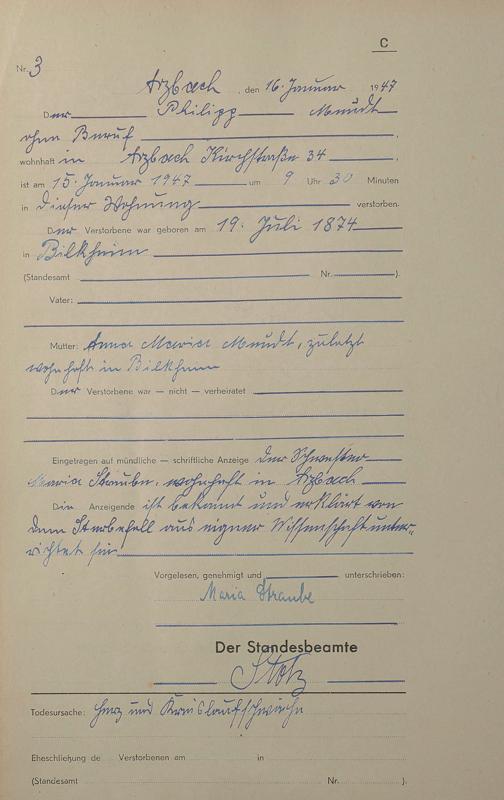 C
Nr. 3
Arzbach, den 16. Januar 1947
Der Philipp Meudt
ohne Beruf,
wohnhaft in Arzbach Kirchstraße 34,
ist am 15. Januar 1947 um 9 Uhr 30 Minuten
in dieser Wohnung verstorben.
Der Verstorbene war geboren am 19. Juli 1874
in Bilkheim
(Standesamt Nr. ).
Vater:
Mutter: Anna Maria Meudt, zuletzt
wohnhaft in Bilkheim
Der Verstorbene war — nicht — verheiratet
Eingetragen auf mündliche — schriftliche Anzeige der Schwester
Maria Straube, wohnhaft in Arzbach
Die Anzeigende ist bekannt und erklärt von
dem Sterbefall aus eigner Wissenschaft unter-
richtet sein
Vorgelesen, genehmigt und unterschrieben:
Maria Straube
Der Standesbeamte
Stotz
Todesursache: Herz und Kreislaufschwäche
Eheschließung de Verstorbenen am in
(Standesamt Nr. ).